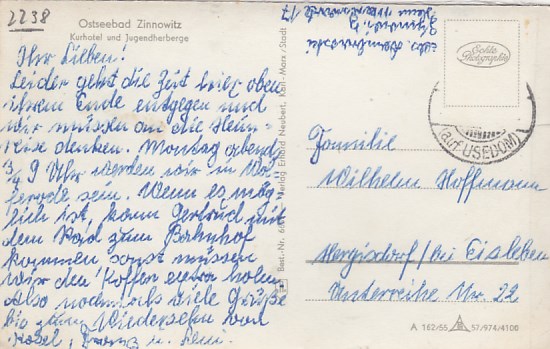 2238
Ostseebad Zinnowitz
Kurhotel und Jugendherberge
Ihr Lieben!
Leider geht die Zeit hier oben
ihrem Ende entgegen und
wir müssen an die Heim-
reise denken. Montag abend
3/4 9 Uhr werden wir in
sein. Wenn es mög-
lich ist, kann Gertrud mit
dem Rad zum Bahnhof
kommen sonst müssen
wir den Koffer extra holen.
Also nochmals viele Grüße
bis zum Wiedersehn von
u.
17
Verlag Erhard Neubert, Karl-Marx-Stadt
Best.-Nr.
Echte
Photographie
(auf USEDOM)
Familie
Wilhelm Hoffmann
Hergisdorf/bei Eisleben
Unterreihe Nr. 22
A 162/55 57/974/4100